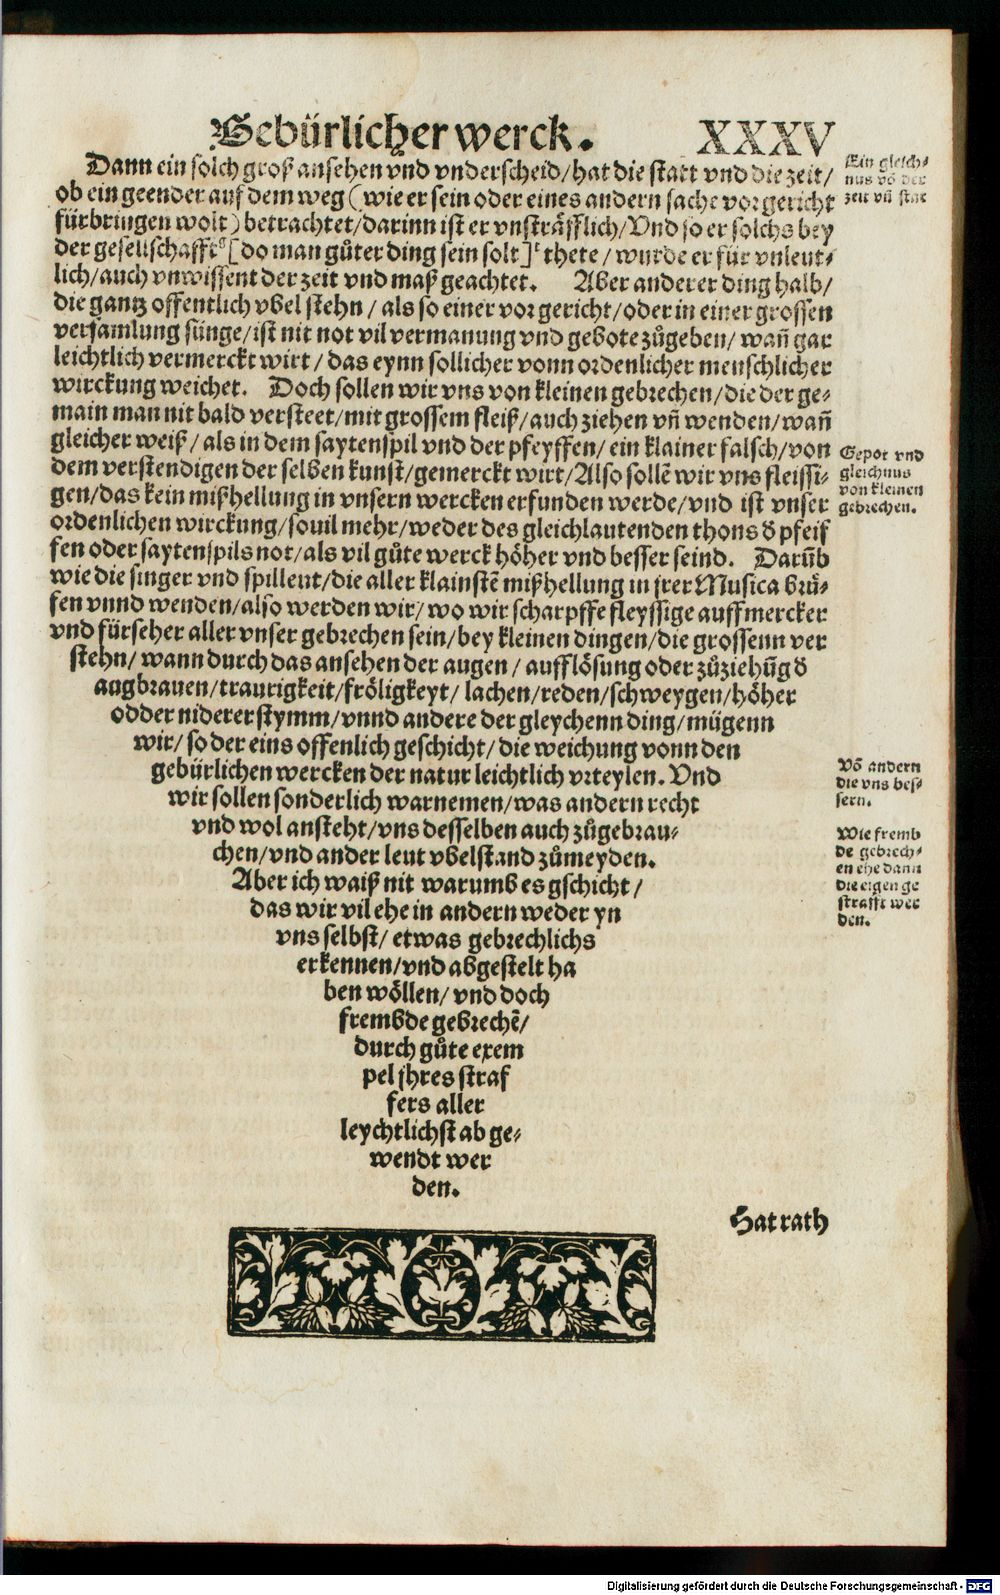 Gebürlicher werck. XXXV
Dann ein solch groß ansehen vnd vnderscheid/hat die statt vnd die zeit/
ob ein geender auf dem weg (wie er sein oder eines andern sache vor gericht
fürbringen wolt) betrachtet/darinn ist er vnsträfflich/Vnd so er solchs bey
der gesellschafft [do man gůter ding sein solt] thete/wurde er für vnleut⸗
lich/auch vnwissent der zeit vnd maß geachtet. Aber anderer ding halb/
die gantz offentlich vbel stehn/als so einer vor gericht/oder in einer grossen
versamlung sünge/ist nit not vil vermanung vnd gebote zůgeben/wañ gar
leichtlich vermerckt wirt/das eynn sollicher vonn ordenlicher menschlicher
wirckung weichet. Doch sollen wir vns von kleinen gebrechen/die der ge⸗
main man nit bald versteet/mit grossem fleiß/auch ziehen vñ wenden/wañ
gleicher weiß/als in dem saytenspil vnd der pfeyffen/ein klainer falsch/von
dem verstendigen der selben kunst/gemerckt wirt/Also sollẽ wir vns fleissi⸗
gen/das kein mißhellung in vnsern wercken erfunden werde/vnd ist vnser
ordenlichen wirckung/souil mehr/weder des gleichlautenden thons đ pfeif
fen oder saytenspils not/als vil gůte werck höher vnd besser seind. Darũb
wie die singer vnd spilleut/die aller klainstẽ mißhellung in jrer Musica brü⸗
fen vnnd wenden/also werden wir/wo wir scharpffe fleyssige auffmercker
vnd fürseher aller vnser gebrechen sein/bey kleinen dingen/die grossenn ver
stehn/wann durch das ansehen der augen/aufflösung oder zůziehũg đ
augbrauen/traurigkeit/fröligkeyt/lachen/reden/schweygen/höher
odder niderer stymm/vnnd andere der gleychenn ding/mügenn
wir/so der eins offenlich geschicht/die weichung vonn den
gebürlichen wercken der natur leichtlich vrteylen. Vnd
wir sollen sonderlich warnemen/was andern recht
vnd wol ansteht/vns desselben auch zůgebrau⸗
chen/vnd ander leut vbelstand zůmeyden.
Aber ich waiß nit warumb es gschicht/
das wir vil ehe in andern weder yn
vns selbst/etwas gebrechlichs
erkennen/vnd abgestelt ha
ben wöllen/vnd doch
frembde gebrechẽ/
durch gůte exem
pel jhres straf
fers aller
leychtlichst ab ge⸗
wendt wer
den.
Hat rath
Ein gleich⸗
nus võ der
zeit vñ stat
Gepot vnd
gleichnus
von kleinen
gebrechen.
Võ andern
die vns bes⸗
sern.
Wie fremb
de gebrech⸗
en ehe dann
die eigen ge
strafft wer
den.
Digitalisierung gefördert durch die Deutsche Forschungsgemeinschaft - DFG